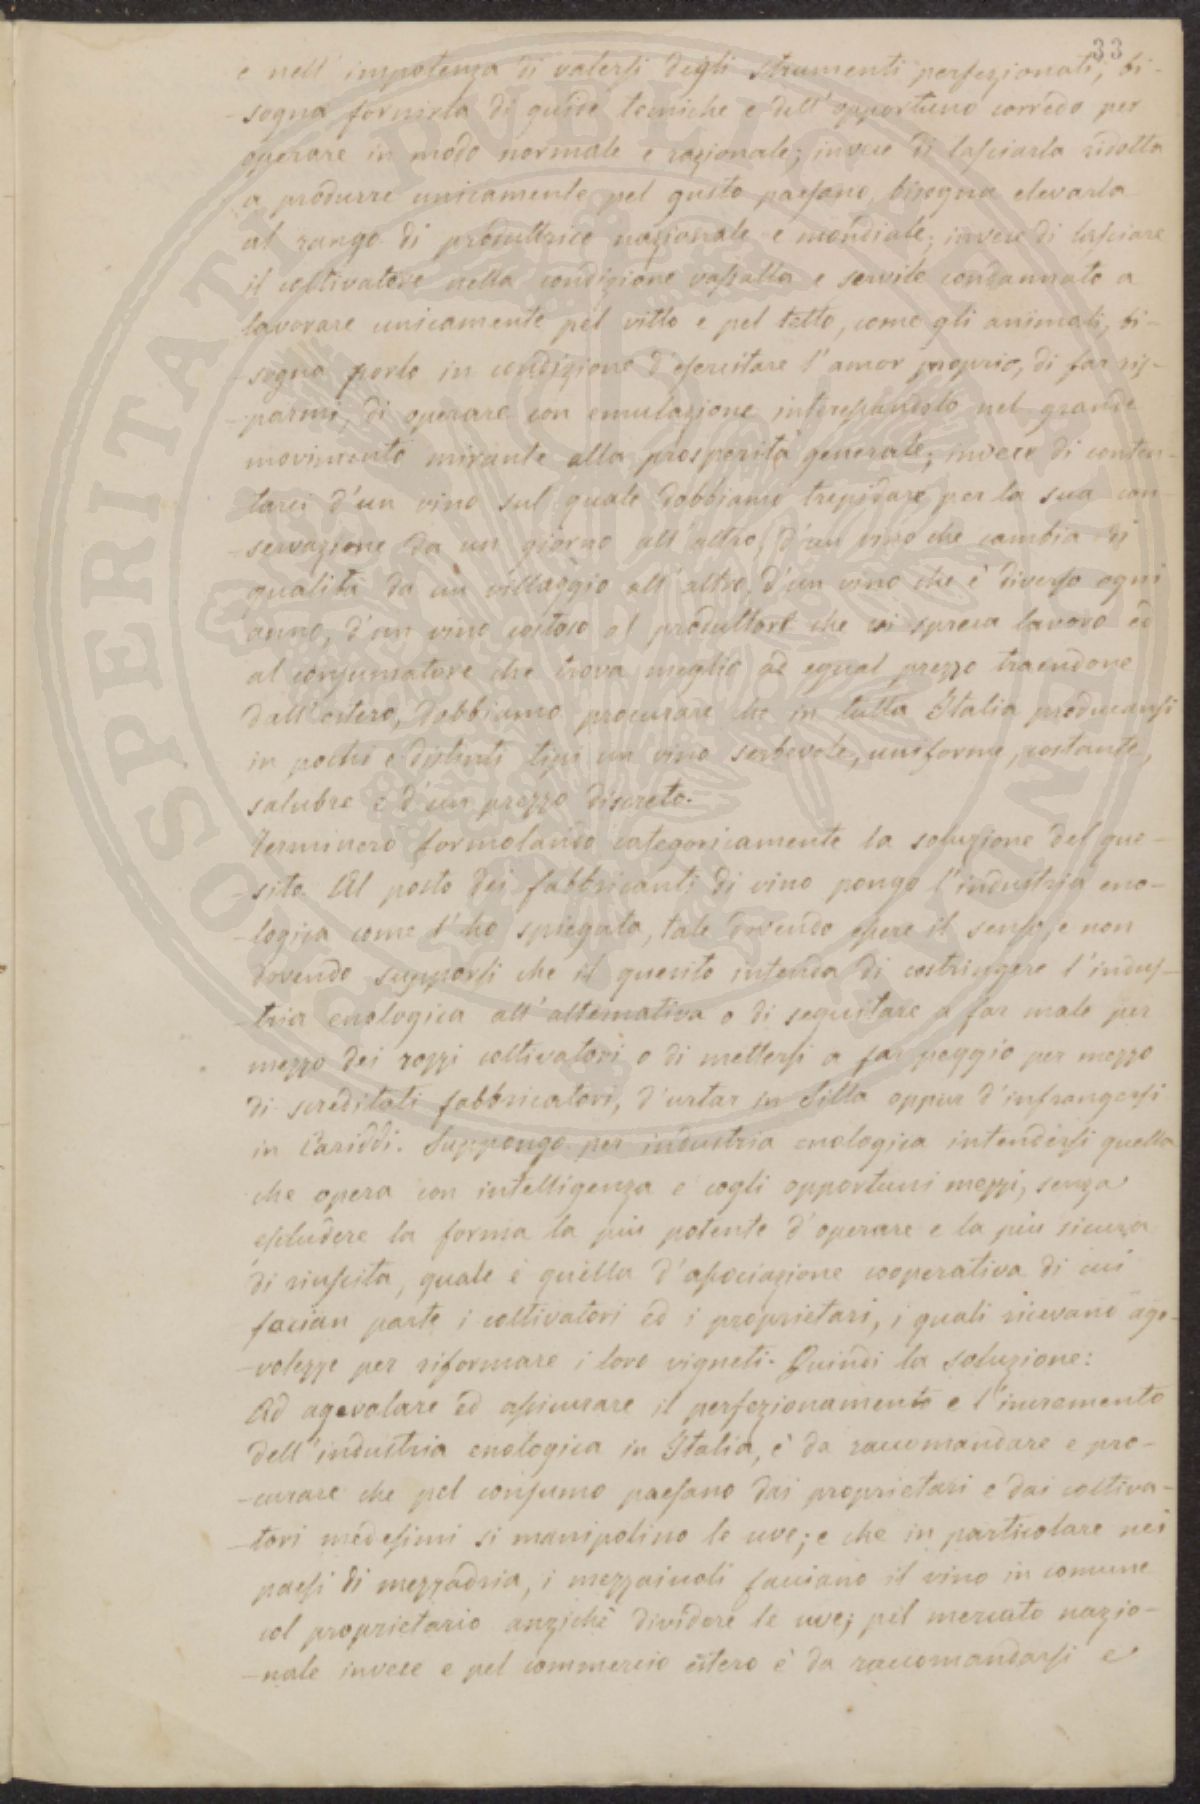 33
e nell' impotenza di valersi degli strumenti perfezionati, bi-
-sogna fornirla di guide tecniche e dell' opportuno corredo per
operare in modo normale e razionale; invece di lasciarla ridotta
a produrre unicamente pel gusto paesano, bisogna elevarla
al rango di produttrice nazionale e mondiale; invece di lasciare
il coltivatore nella condizione vassalla e servile condannato a
lavorare unicamente pel vitto e pel tetto, come gli animali, bi-
-sogna porlo in condizione d'esercitare l'amor proprio, di far ris-
-parmi, di operare con emulazione interessandolo nel grande
movimento mirante alla prosperità generale; invece di conten-
-tarci d'un vino sul quale dobbiamo trepidare per la sua con-
-servazione da un giorno all'altro, d'un vino che cambia di
qualità da un villaggio all'altro, d'un vino che è diverso ogni
anno, d'un vino costoso al produttore che vi spreca lavoro ed
al consumatore che trova meglio ad egual prezzo traendone
dall'estero, dobbiamo procurare che in tutta Italia producansi
in pochi e distinti tipi un vino serbevole, uniforme, costante,
salubre e d'un prezzo discreto.
Terminerò formolando categoricamente la soluzione del que-
-sito. Al posto dei fabbricanti di vino pongo l'industria eno-
-logica come l'ho spiegata, tale dovendo essere il senso, e non
dovendo supporsi che il quesito intenda di costringere l'indus-
-tria enologica all'alternativa o di seguitare a far male per
mezzo dei rozzi coltivatori o di mettersi a far peggio per mezzo
di screditati fabbricatori, d'urtar in Silla oppur d'infrangersi
in Cariddi. Suppongo per industria enologica intendersi quella
che opera con intelligenza e cogli opportuni mezzi, senza
escludere la forma la più potente d'operare e la più sicura
di riuscita, quale è quella d'associazione cooperativa di cui
facian parte i coltivatori ed i proprietari, i quali ricevano age-
-volezze per riformare i loro vigneti. Quindi la soluzione:
Ad agevolare ed assicurare il perfezionamento e l'incremento
dell'industria enologica in Italia, è da raccomandare e pro-
-curare che pel consumo paesano dai proprietari e dai coltiva-
-tori medesimi si manipolino le uve; e che in particolare nei
paesi di mezzadria, i mezzaiuoli facciano il vino in comune
col proprietario anzichè dividere le uve; pel mercato nazio-
-nale invece e pel commercio estero è da raccomandarsi e
PROSPERITATI PUBLICAE AUGENDAE